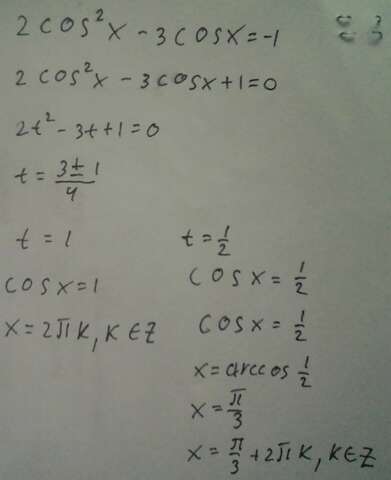 2cos²x - 3cosx = -1
2cos²x - 3cosx + 1 = 0
2t² - 3t + 1 = 0
t = (3 ± 1)/4
t = 1
cosx = 1
x = 2πk, k ∈ Z
t = 1/2
cosx = 1/2
cosx = 1/2
x = arccos 1/2
x = π/3
x = π/3 + 2πk, k ∈ Z